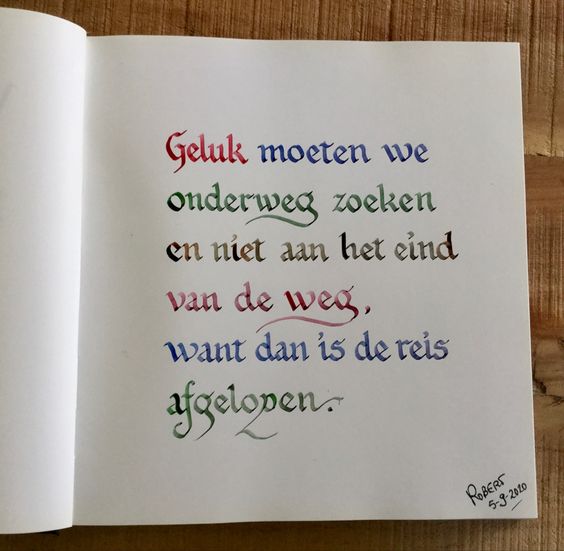 Geluk moeten we
onderweg zoeken
en niet aan het eind
van de weg,
want dan is de reis
afgelopen.
ROBERT
5-9-2020